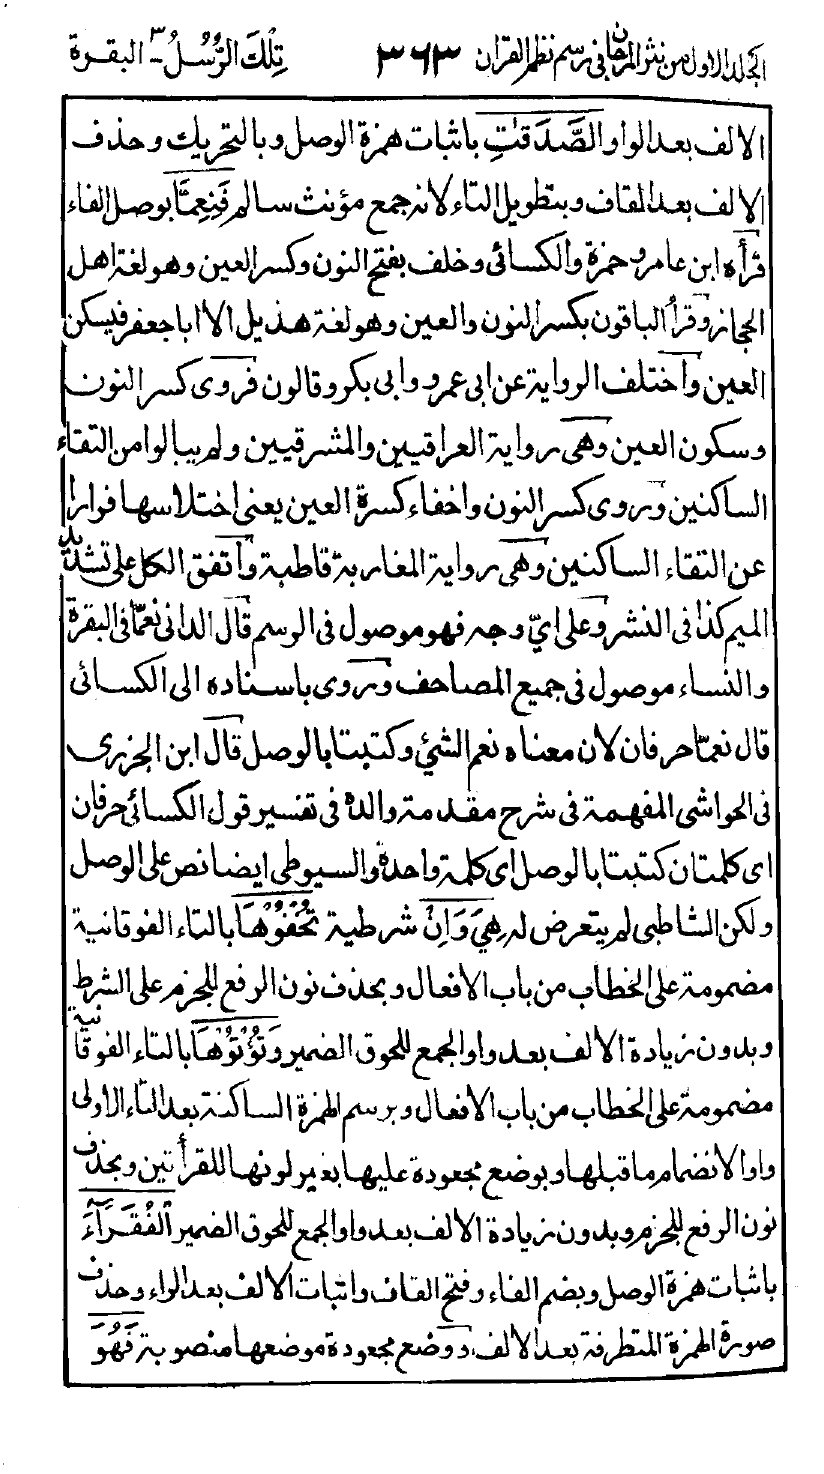 الجلد الاول من نثر المرجان في رسم نظم القران ٣٦٣ تِلْكَ الرُّسُلُ ٣ - البقرة
الالف بعد الواو الصَّدَقٰتِ باثبات همزة الوصل وبالتحريك وحذف
الالف بعد القاف وبتطويل التاء لانه جمع مؤنث سالم فَنِعِمَّا بوصل الفاء
قرأه ابن عامر وحمزة والكسائى وخلف بفتح النون وكسر العين وهو لغة اهل
الحجاز وقرأ الباقون بكسر النون والعين وهو لغة هذيل الا ابا جعفر فيسكن
العين واختلف الرواية عن ابى عمرو وابى بكر وقالون فروى كسر النون
وسكون العين وهى رواية العراقيين والمشرقيين ولم يبالوا من التقاء
الساكنين وروى كسر النون واخفاء كسرة العين يعنى اختلاسها فرارا
عن التقاء الساكنين وهى رواية المغاربة قاطبة واتفق الكل على تشديد
الميم كذا فى النشر وعلى اىّ وجه فهو موصول فى الرسم قال الدانى نعمّا فى البقرة
والنساء موصول فى جميع المصاحف وروى باسناده الى الكسائى
قال نعمّا حرفان لان معناه نعم الشئ وكتبتا بالوصل قال ابن الجزرى
فى الحواشى المفهمة فى شرح مقدمة والده فى تفسير قول الكسائى حرفان
اى كلمتان كتبتا بالوصل اى كلمة واحدة والسيوطى ايضا نص على الوصل
ولكن الشاطبى لم يتعرض له هِيَ وَاِنْ شرطية تُخْفُوْهَا بالتاء الفوقانية
مضمومة على الخطاب من باب الافعال وبحذف نون الرفع للجزم على الشرط
وبدون زيادة الالف بعد واو الجمع للحوق الضمير وَتُؤْتُوْهَا بالتاء الفوقانية
مضمومة على الخطاب من باب الافعال وبرسم الهمزة الساكنة بعد التاء الاولى
واوا لانضمام ما قبلها وبوضع مجعودة عليها بغير لونها للقرأتين وبحذف
نون الرفع للجزم وبدون زيادة الالف بعد واو الجمع للحوق الضمير الْفُقَرَآءَ
باثبات همزة الوصل وبضم الفاء وفتح القاف واثبات الالف بعد الراء وحذف
صورة الهمزة المتطرفة بعد الالف ووضع مجعودة موضعها منصوبة فَهُوَ